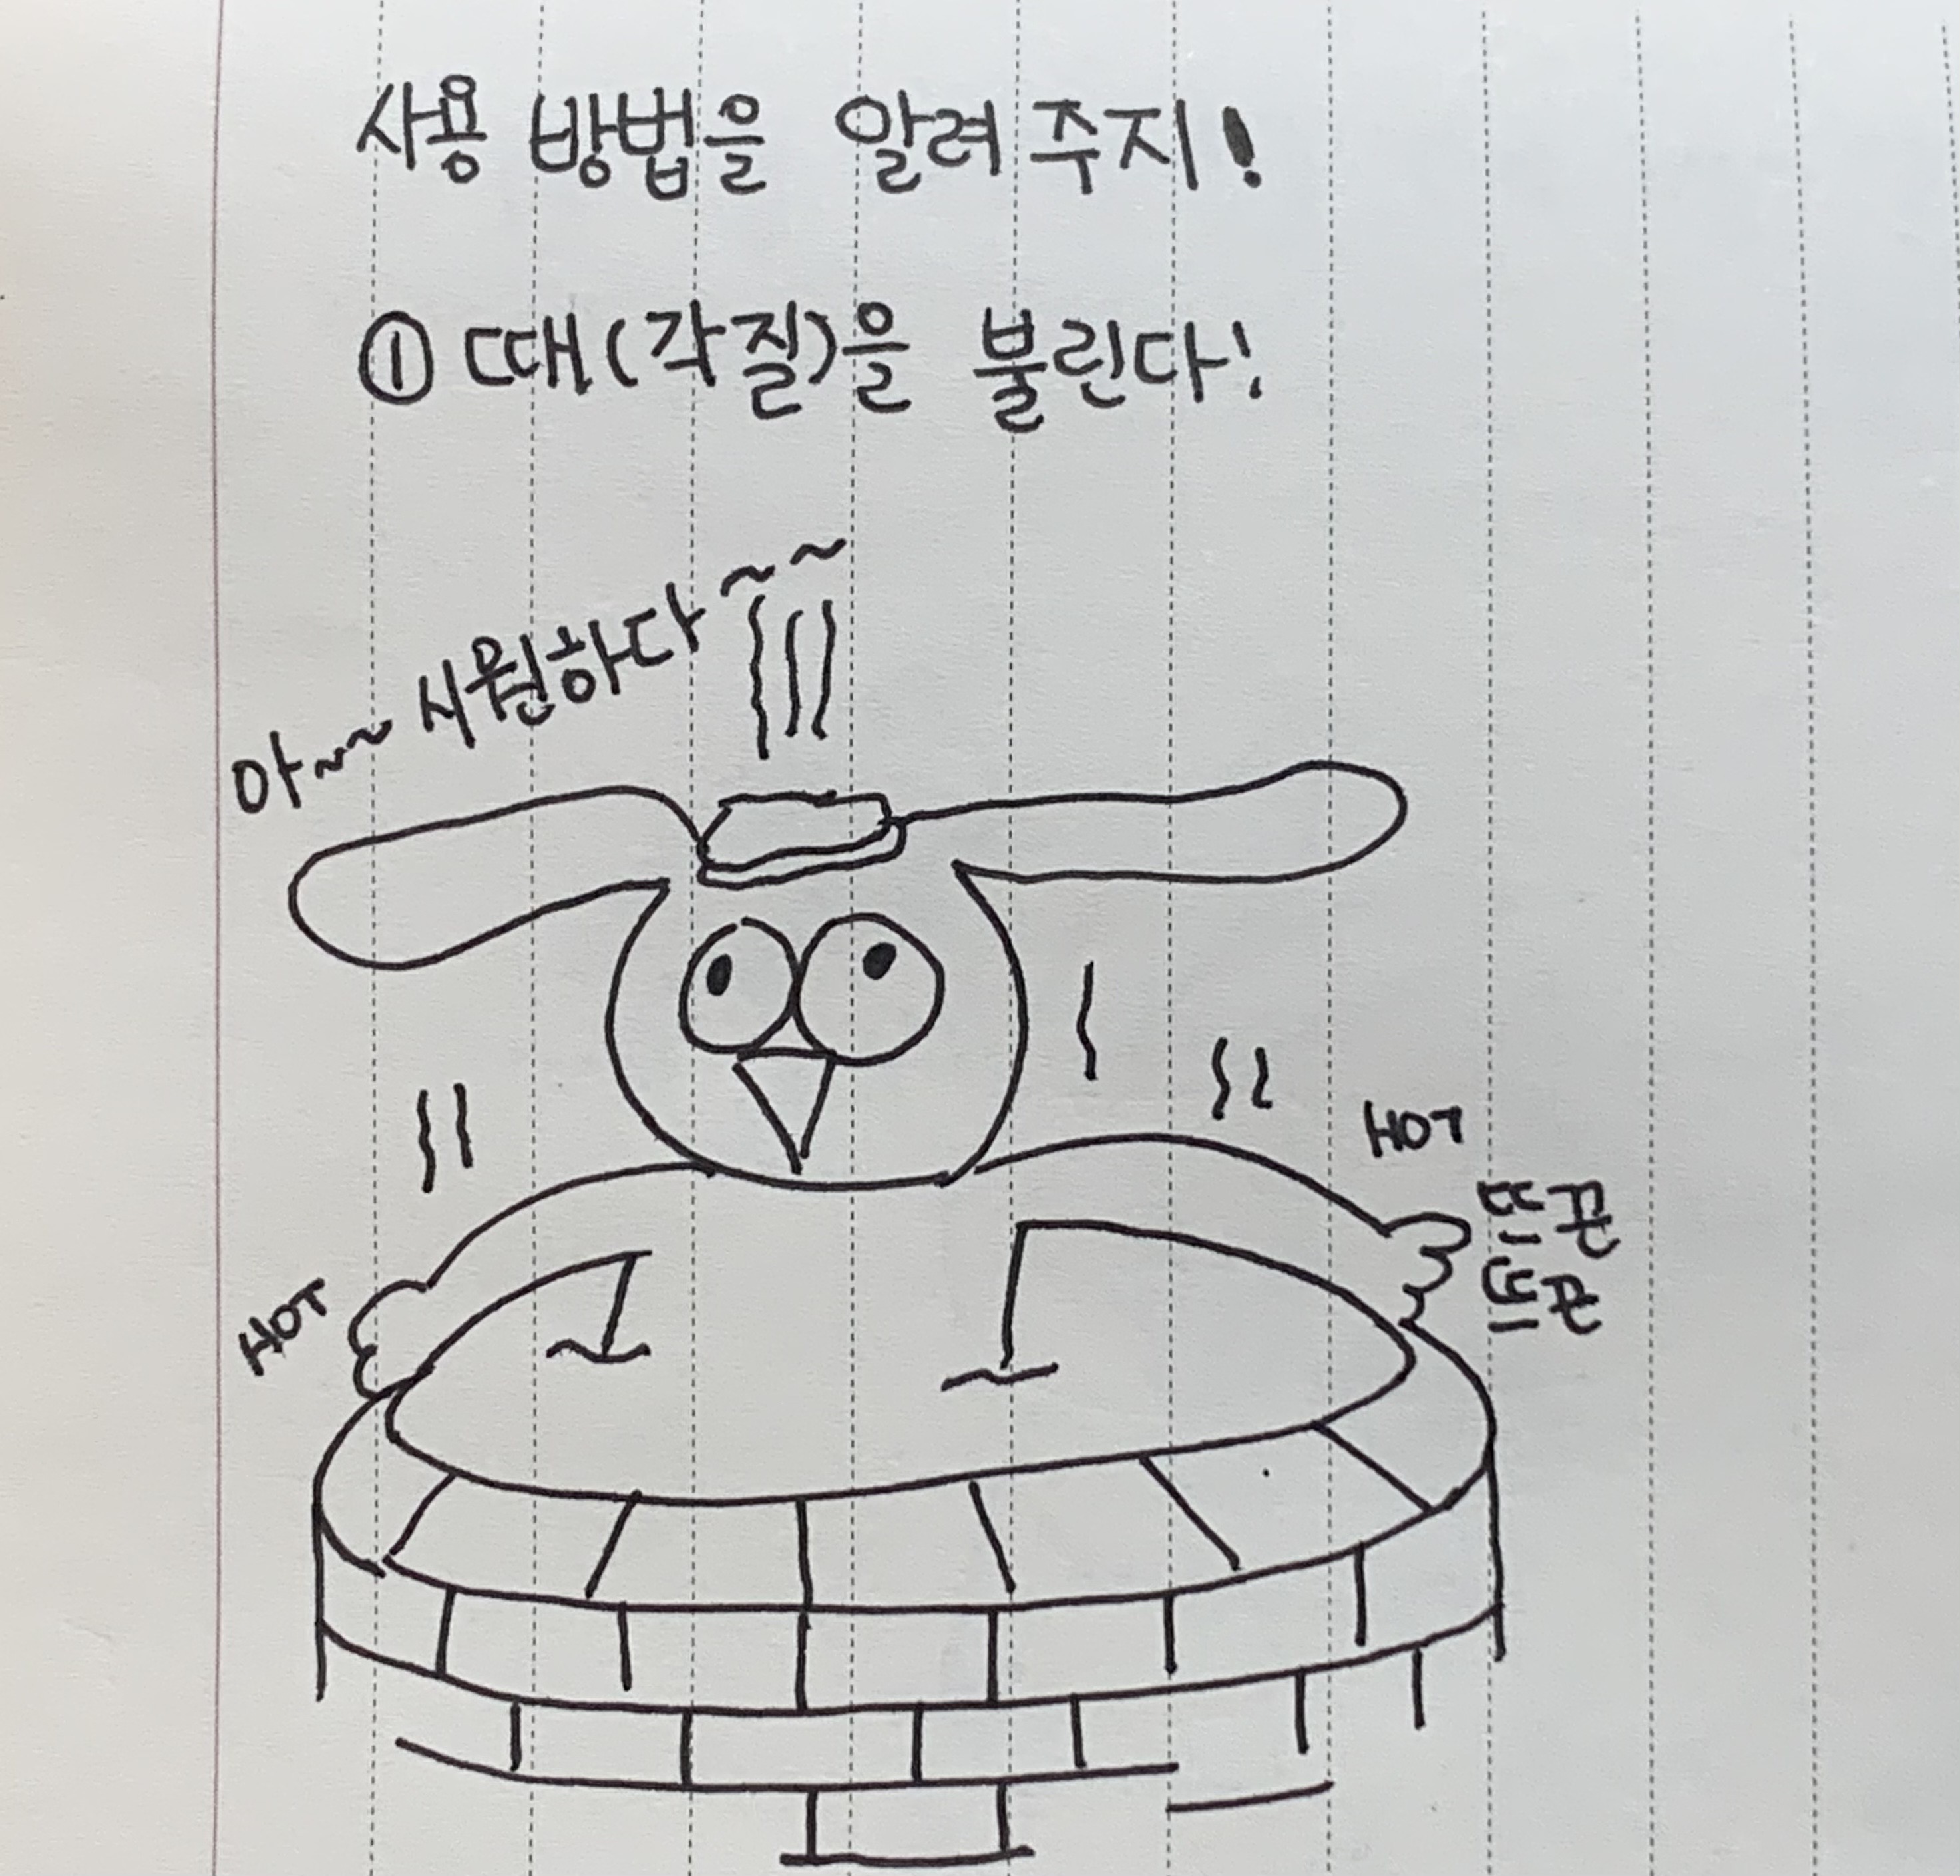 사용 방법을 알려 주지!
① 때(각질)을 불린다!
아~~ 시원하다~~
HOT
뜨끈
뜨끈
HOT